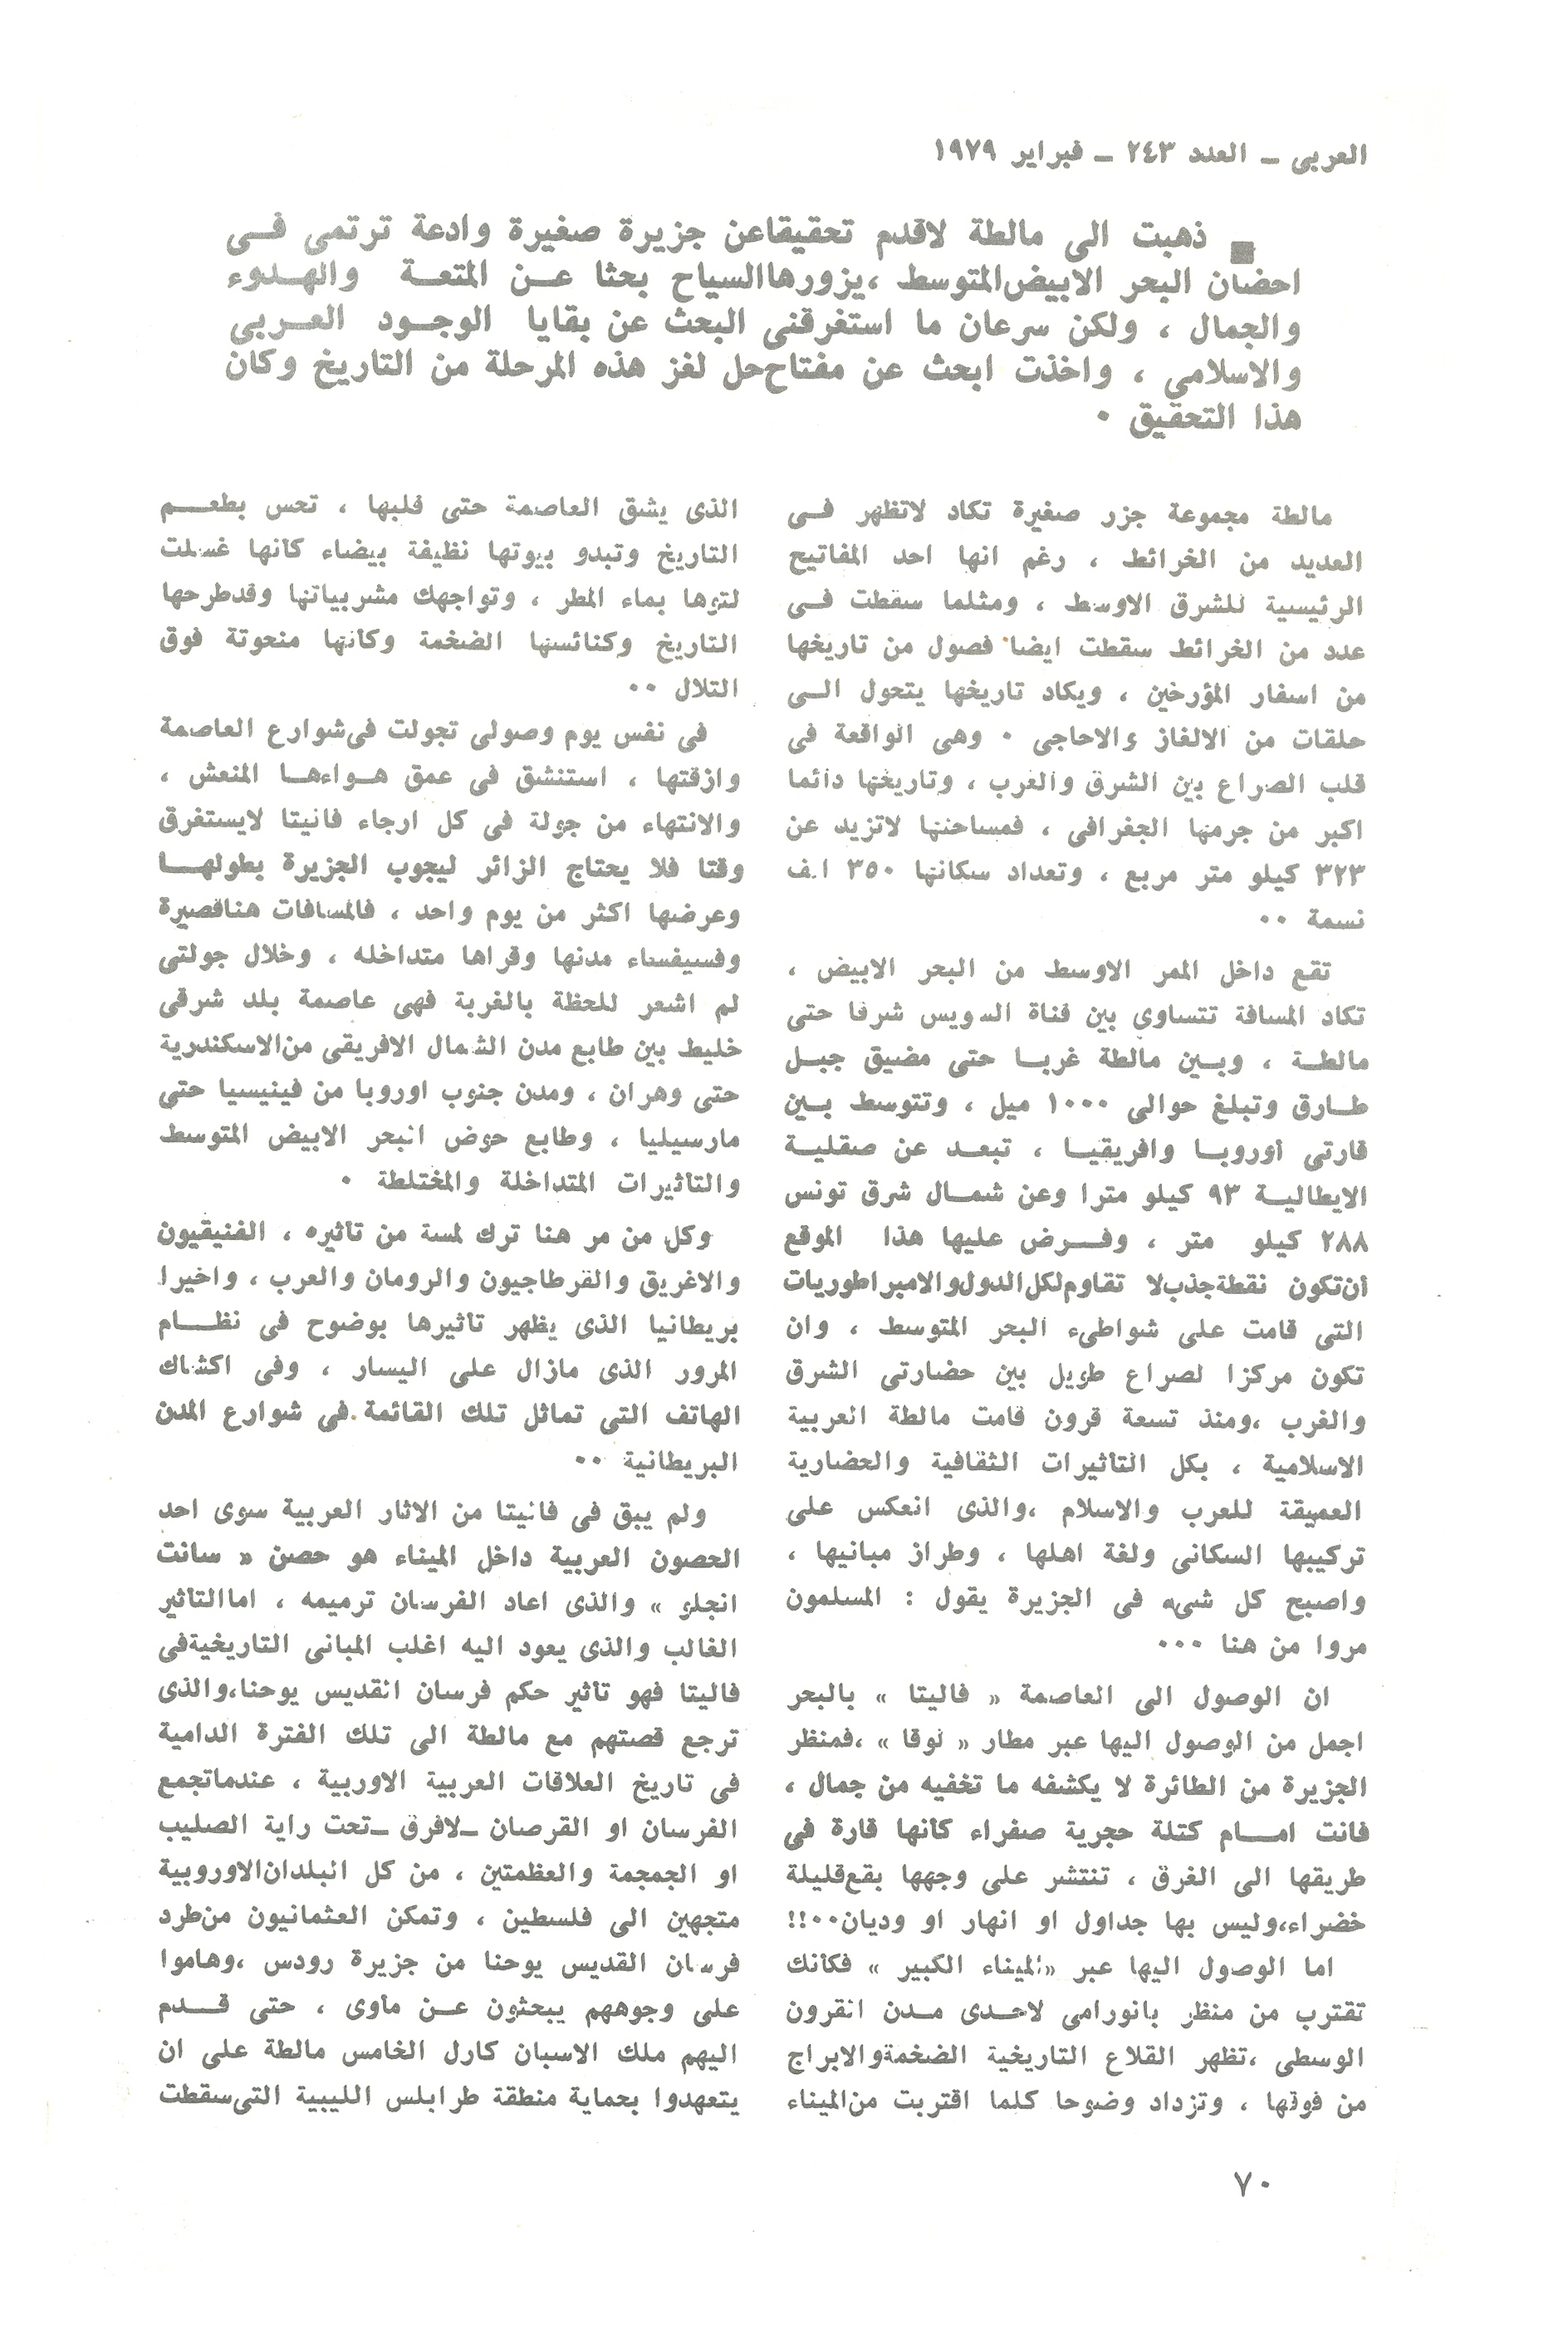 العربى ـ العدد ٢٤٣ ـ فبراير ١٩٧٩
■ ذهبت الى مالطة لاقدم تحقيقاعن جزيرة صغيرة وادعة ترتمى فى
احضان البحر الابيض المتوسط ،يزورها السياح بحثا عن المتعة والهدوء
والجمال ، ولكن سرعان ما استغرقنى البحث عن بقايا الوجود العربى
والاسلامى ، واخذت ابحث عن مفتاح حل لغز هذه المرحلة من التاريخ وكان
هذا التحقيق ٠
مالطة مجموعة جزر صغيرة تكاد لاتظهر فى
العديد من الخرائط ، رغم انها احد المفاتيح
الرئيسية للشرق الاوسط ، ومثلما سقطت فى
عدد من الخرائط سقطت ايضا فصول من تاريخها
من اسفار المؤرخين ، ويكاد تاريخها يتحول الى
حلقات من الالغاز والاحاجى ٠ وهى الواقعة فى
قلب الصراع بين الشرق والغرب ، وتاريخها دائما
اكبر من جرمها الجغرافى ، فمساحتها لاتزيد عن
٣٢٣ كيلو متر مربع ، وتعداد سكانها ٣٥٠ الف
نسمة ٠٠
تقع داخل الممر الاوسط من البحر الابيض ،
تكاد المسافة تتساوى بين قناة السويس شرقا حتى
مالطة ، وبين مالطة غربا حتى مضيق جبل
طارق وتبلغ حوالى ١٠٠٠ ميل ، وتتوسط بين
قارتى أوروبا وافريقيا ، تبعد عن صقلية
الايطالية ٩٣ كيلو مترا وعن شمال شرق تونس
٢٨٨ كيلو متر ، وفرض عليها هذا الموقع
أن تكون نقطة جذب لا تقاوم لكل الدول والامبراطوريات
التى قامت على شواطىء البحر المتوسط ، وان
تكون مركزا لصراع طويل بين حضارتى الشرق
والغرب ،ومنذ تسعة قرون قامت مالطة العربية
الاسلامية ، بكل التأثيرات الثقافية والحضارية
العميقة للعرب والاسلام ،والذى انعكس على
تركيبها السكانى ولغة اهلها ، وطراز مبانيها ،
واصبح كل شىء فى الجزيرة يقول : المسلمون
مروا من هنا ٠٠٠
ان الوصول الى العاصمة « فاليتا » بالبحر
اجمل من الوصول اليها عبر مطار « لوقا » ،فمنظر
الجزيرة من الطائرة لا يكشفه ما تخفيه من جمال ،
فانت امام كتلة حجرية صفراء كأنها قارة فى
طريقها الى الغرق ، تنتشر على وجهها بقع قليلة
خضراء،وليس بها جداول او انهار او وديان٠٠!!
اما الوصول اليها عبر «الميناء الكبير » فكأنك
تقترب من منظر بانورامى لاحدى مدن القرون
الوسطى ،تظهر القلاع التاريخية الضخمة والابراج
من فوقها ، وتزداد وضوحا كلما اقتربت من الميناء
الذى يشق العاصمة حتى قلبها ، تحس بطعم
التاريخ وتبدو بيوتها نظيفة بيضاء كأنها غسلت
لتوها بماء المطر ، وتواجهك مشربياتها وقدطرحها
التاريخ وكنائسها الضخمة وكأنها منحوتة فوق
التلال ٠٠
فى نفس يوم وصولى تجولت فى شوارع العاصمة
وازقتها ، استنشق فى عمق هواءها المنعش ،
والانتهاء من جولة فى كل ارجاء فاليتا لايستغرق
وقتا فلا يحتاج الزائر ليجوب الجزيرة بطولها
وعرضها اكثر من يوم واحد ، فالمسافات هناقصيرة
وفسيفساء مدنها وقراها متداخله ، وخلال جولتى
لم اشعر للحظة بالغربة فهى عاصمة بلد شرقى
خليط بين طابع مدن الشمال الافريقى من الاسكندرية
حتى وهران ، ومدن جنوب اوروبا من فينيسيا حتى
مارسيليا ، وطابع حوض البحر الابيض المتوسط
والتأثيرات المتداخلة والمختلطة ٠
وكل من مر هنا ترك لمسة من تأثيره ، الفنيقيون
والاغريق والقرطاجيون والرومان والعرب ، واخيرا
بريطانيا الذى يظهر تاثيرها بوضوح فى نظام
المرور الذى مازال على اليسار ، وفى اكشاك
الهاتف التى تماثل تلك القائمة فى شوارع المدن
البريطانية ٠٠
ولم يبق فى فاليتا من الاثار العربية سوى احد
الحصون العربية داخل الميناء هو حصن « سانت
انجلو » والذى اعاد الفرسان ترميمه ، اما التأثير
الغالب والذى يعود اليه اغلب المبانى التاريخية فى
فاليتا فهو تاثير حكم فرسان القديس يوحنا،والذى
ترجع قصتهم مع مالطة الى تلك الفترة الدامية
فى تاريخ العلاقات العربية الاوربية ، عندما تجمع
الفرسان او القرصان ـلافرق ـتحت راية الصليب
او الجمجمة والعظمتين ، من كل البلدان الاوروبية
متجهين الى فلسطين ، وتمكن العثمانيون من طرد
فرسان القديس يوحنا من جزيرة رودس ،وهاموا
على وجوههم يبحثون عن مأوى ، حتى قدم
اليهم ملك الاسبان كارل الخامس مالطة على ان
يتعهدوا بحماية منطقة طرابلس الليبية التى سقطت
٧٠